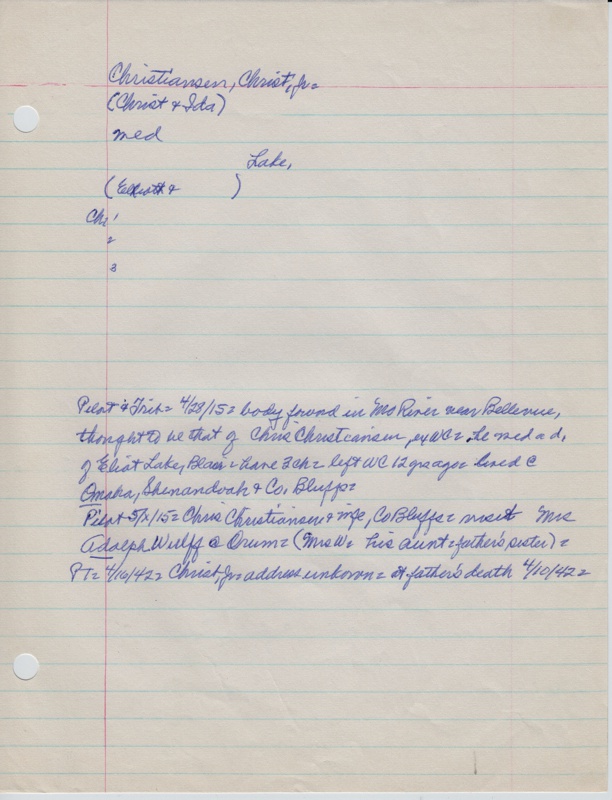 Christiansen, Christ, Jr =
(Christ & Ida)
med
Lake,
(Elliott & )
Ch: 1
2
3
Pilot & Trib = 4/28/15 = body found in Mo River near Bellevue,
thought to be that of Chris Christiansen, ex WC = he med a d,
of Eliot Lake, Blair = have 3 ch = left WC 12 yrs ago = lived @
Omaha, Shenandoah & Co. Bluffs =
Pilot 5/ /15 = Chris Christiansen & wife, Co Bluffs = visit Mrs
Adolph Wulff @ Orum = (Mrs W = his aunt = father's sister) =
PT = 4/16/42 = Christ, Jr = address unkown = at father's death 4/10/42 =